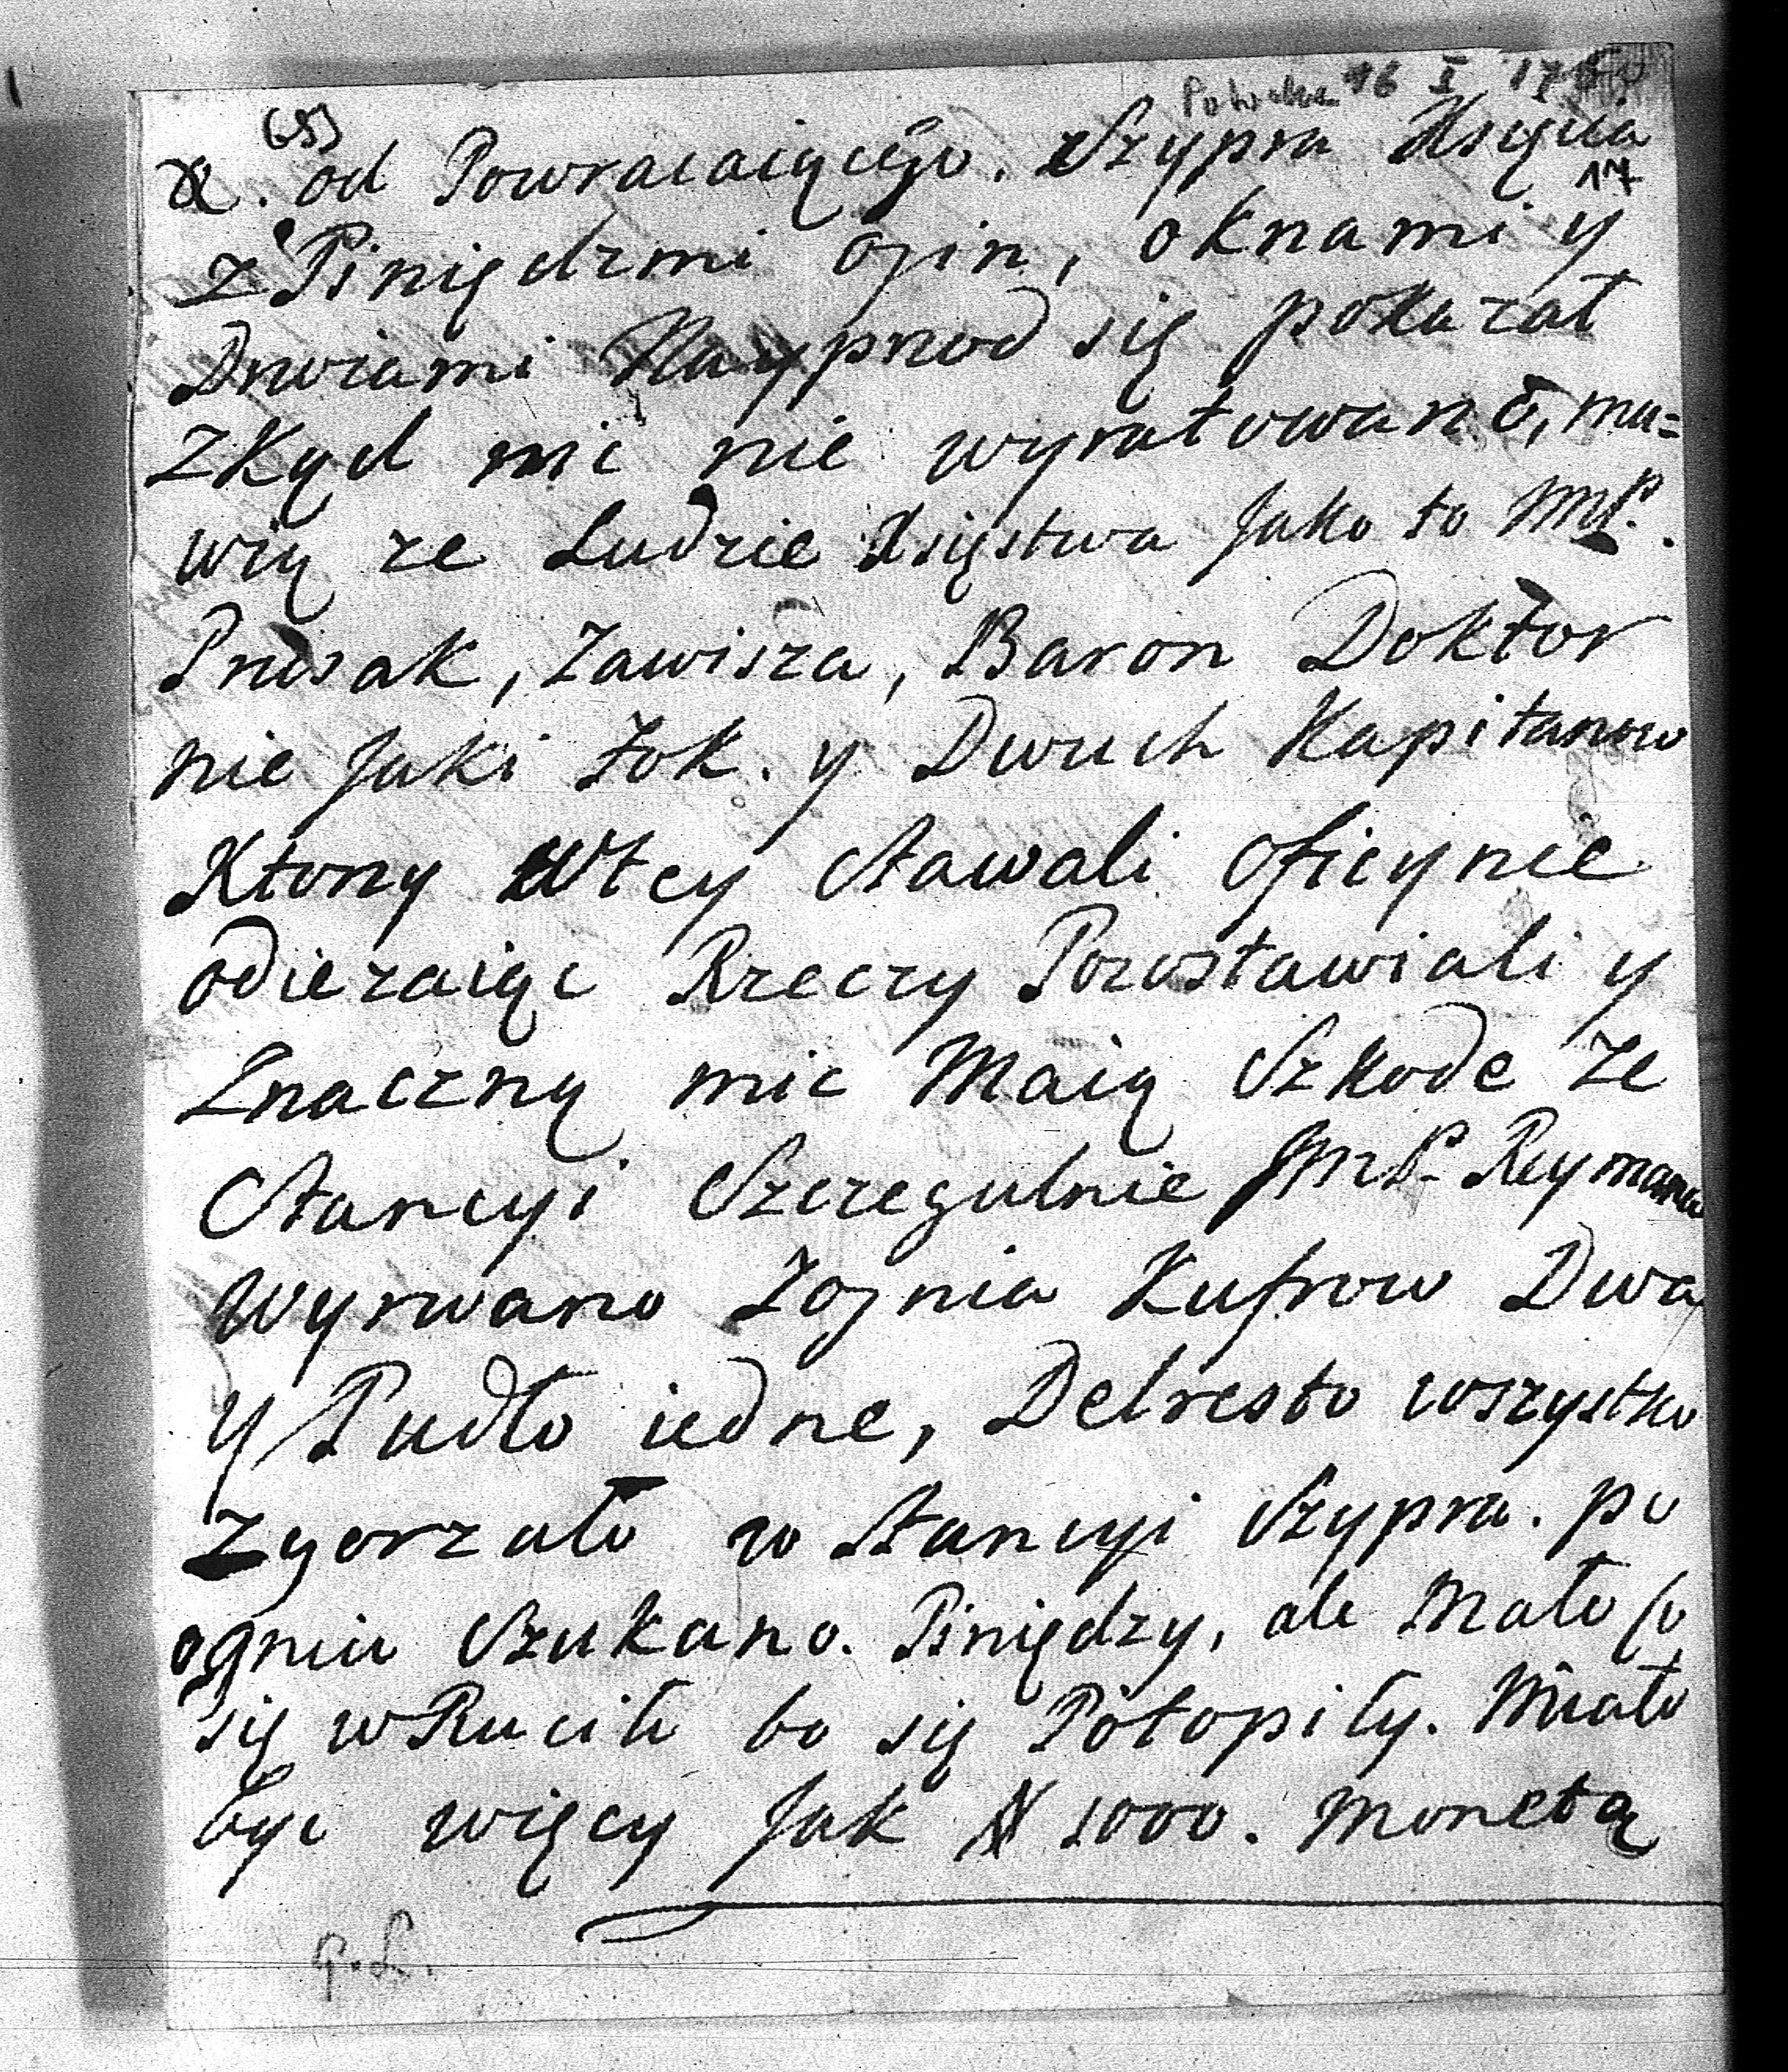 16 I 17
(53)
X. od Powracaiącego. Szypra Xsięcia
17
z Pinię dzmi ogin, oknami y
Drwiami Nayprzod się pokazał
zkąd nic nie wyratowano, mu=
wią ze Ludzie Xsięstwa Jako to MP.
Prusak, Zawisza, Baron Doktor
nie Jaki Zok. y Dwuch Kapitanow
Ktorzy Wtey stawali oficynie
odiezaiąc Rzeczy Pozostawiali y
Znaczną mic Maią Szkode ze
Stancyi Szczegulnie JMP. Reymana
Wyrwano Zognia Kufrow Dwa
y Pudło iedne, Delresto wszystko
zgorzało w Stancyi Szypra. po
ogniu Szukano. Piniędzy, ale Mało co
się wRucili bo się Potopiły. Miało
byc więcy Jak X 1000. monetą